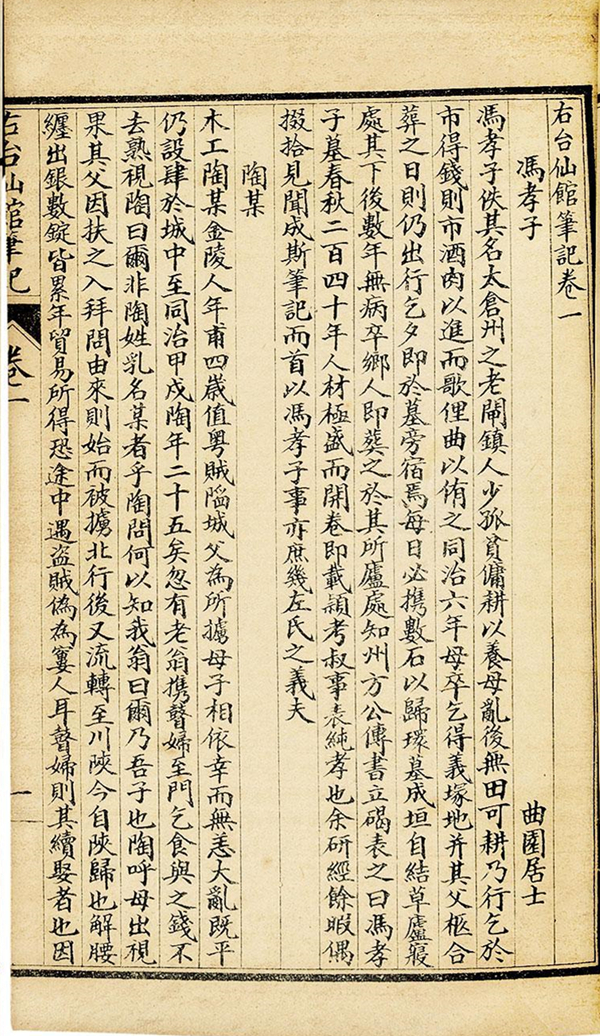 右台仙館筆記卷一
馮孝子
曲園居士
馮孝子佚其名太倉州之老鬧鎮人少孤貧傭耕以養母亂後無田可耕乃行乞於
市得錢則市酒肉以進而歌俚曲以侑之同治六年母卒乞得義塚地并其父柩合
葬之日則仍出行乞夕即於墓旁宿焉每日必攜數石以歸環墓成垣自結草廬寢
處其下後數年無病卒鄉人即葬之於其所廬處知州方公傳書立碣表之曰馮孝
子墓春秋二百四十年人材極盛而開卷即載潁考叔事表純孝也余研經餘暇偶
掇拾見聞成斯筆記而首以馮孝子事亦庶幾左氏之義夫
陶某
木工陶某金陵人年甫四歲值粵賊陷城父為所擄母子相依幸而無恙大亂既平
仍設肆於城中至同治甲戌陶年二十五矣忽有老翁攜瞽婦至門乞食與之錢不
去熟視陶曰爾非陶姓乳名某者乎陶問何以知我翁曰爾乃吾子也陶呼母出視
果其父因扶之入拜問由來則始而被擄北行後又流轉至川陝今自陝歸也解腰
纏出銀數錠皆累年貿易所得恐途中遇盜賊偽為窶人耳瞽婦則其續娶者也因
右台仙館筆記
卷一
一